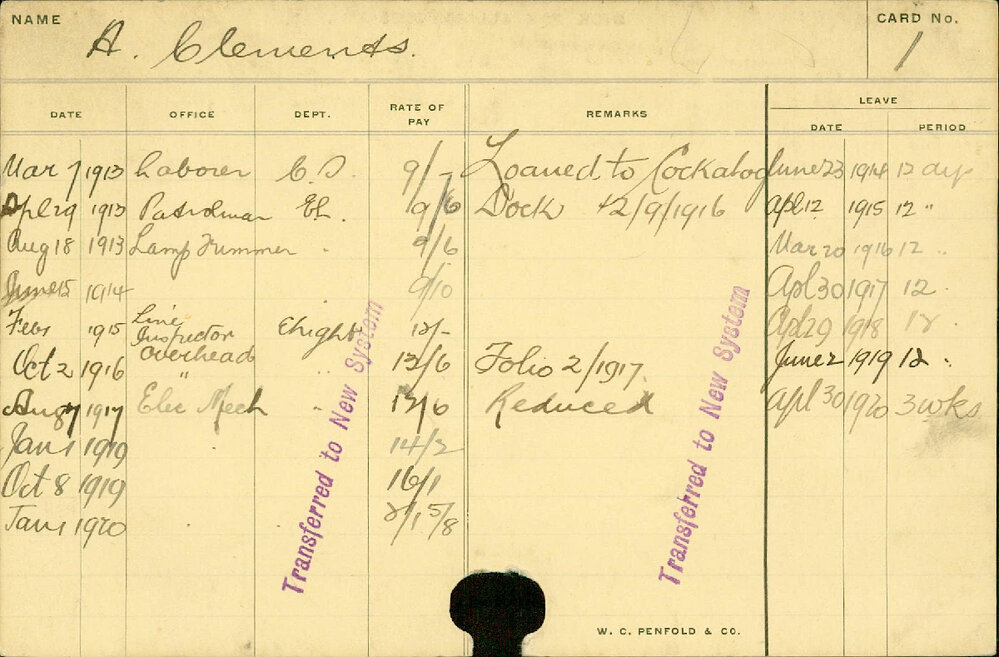 NAME A. Clements. CARD No. 1
DATE OFFICE DEPT. RATE OF PAY REMARKS LEAVE
DATE PERIOD
Mar 7 1913 Laborer 9/- Loaned to Cockatoo June 23 1914 12 dys
Apl 29 1913 Patrolman EL. 9/6 Dock 12/9/1916 Apl 12 1915 12 "
Aug 18 1913 Lamp Trimmer " 9/6 Mar 20 1916 12 "
June 15 1914 9/10 Apl 30 1917 12 "
Feb 1 1915 Line Inspector Elight 12/- Apl 29 1918 12 "
overhead
Oct 2 1916 " " 12/6 Folio 2/1917. June 2 1919 12 "
Aug 7 1917 Elec Mech " 12/6 Reduced Apl 30 1920 3 wks
Jan 1 1919 " 14/2
Oct 8 1919 16/1
Jan 1 1920
Transferred to New System
Transferred to New System
W. C. PENFOLD & CO.